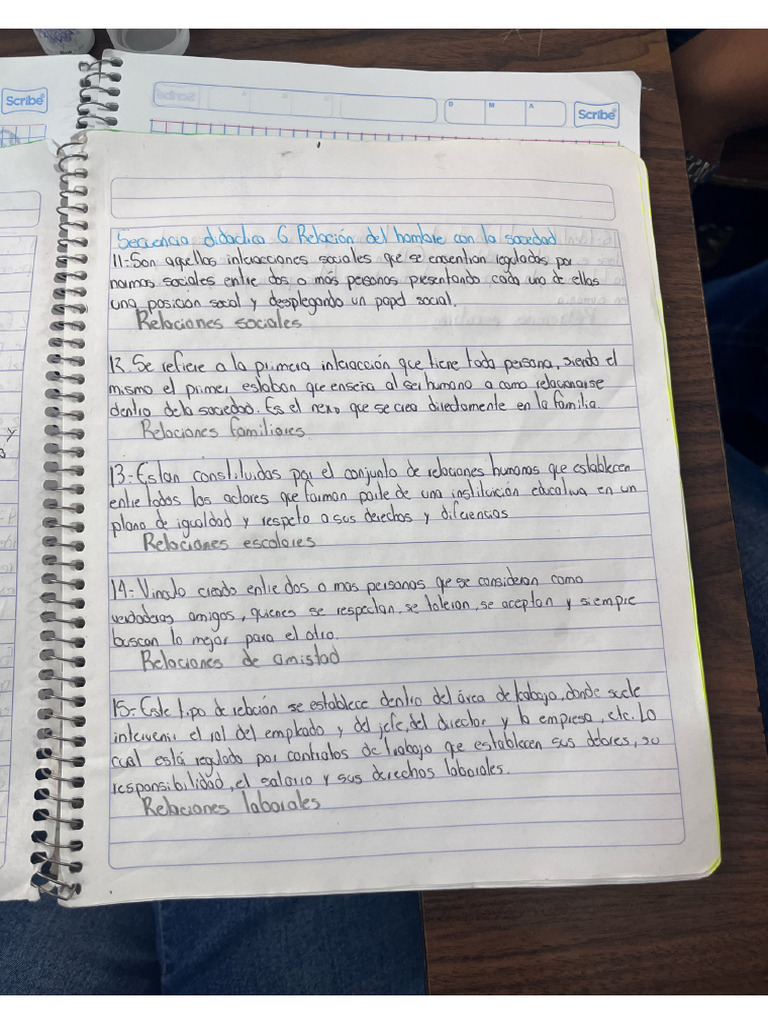 Scribe
D M A
Scribe
Secuencia didactica 6 Relación del hombre con la sociedad
11-Son aquellas interacciones sociales que se encuentran reguladas por
normas sociales entre dos o más personas presentando cada uno de ellas
una posición social y desplegando un papel social.
Relaciones sociales
12. Se refiere a la primera interacción que tiene toda persona, siendo el
mismo el primer eslabon que enseña al ser humano a como relacionarse
dentro de la sociedad. Es el nexo que se crea directamente en la familia.
Relaciones familiares
13-Estan constituidas por el conjunto de relaciones humanas que establecen
entre todos los actores que forman parte de una institución educativa en un
plano de igualdad y respeto a sus derechos y diferencias
Relaciones escolares
14-Vinculo creado entre dos o mas personas que se consideran como
verdaderos amigos, quienes se respectan, se toleran, se aceptan y siempre
buscan lo mejor para el otro.
Relaciones de amistad
15-Este tipo de relación se establece dentro del área de trabajo, donde suele
intervenir el rol del empleado y del jefe, del director y la empresa, etc. Lo
cual está regulado por contratos de trabajo que establecen sus deberes, su
responsibilidad, el salario y sus derechos laborales.
Relaciones laborales